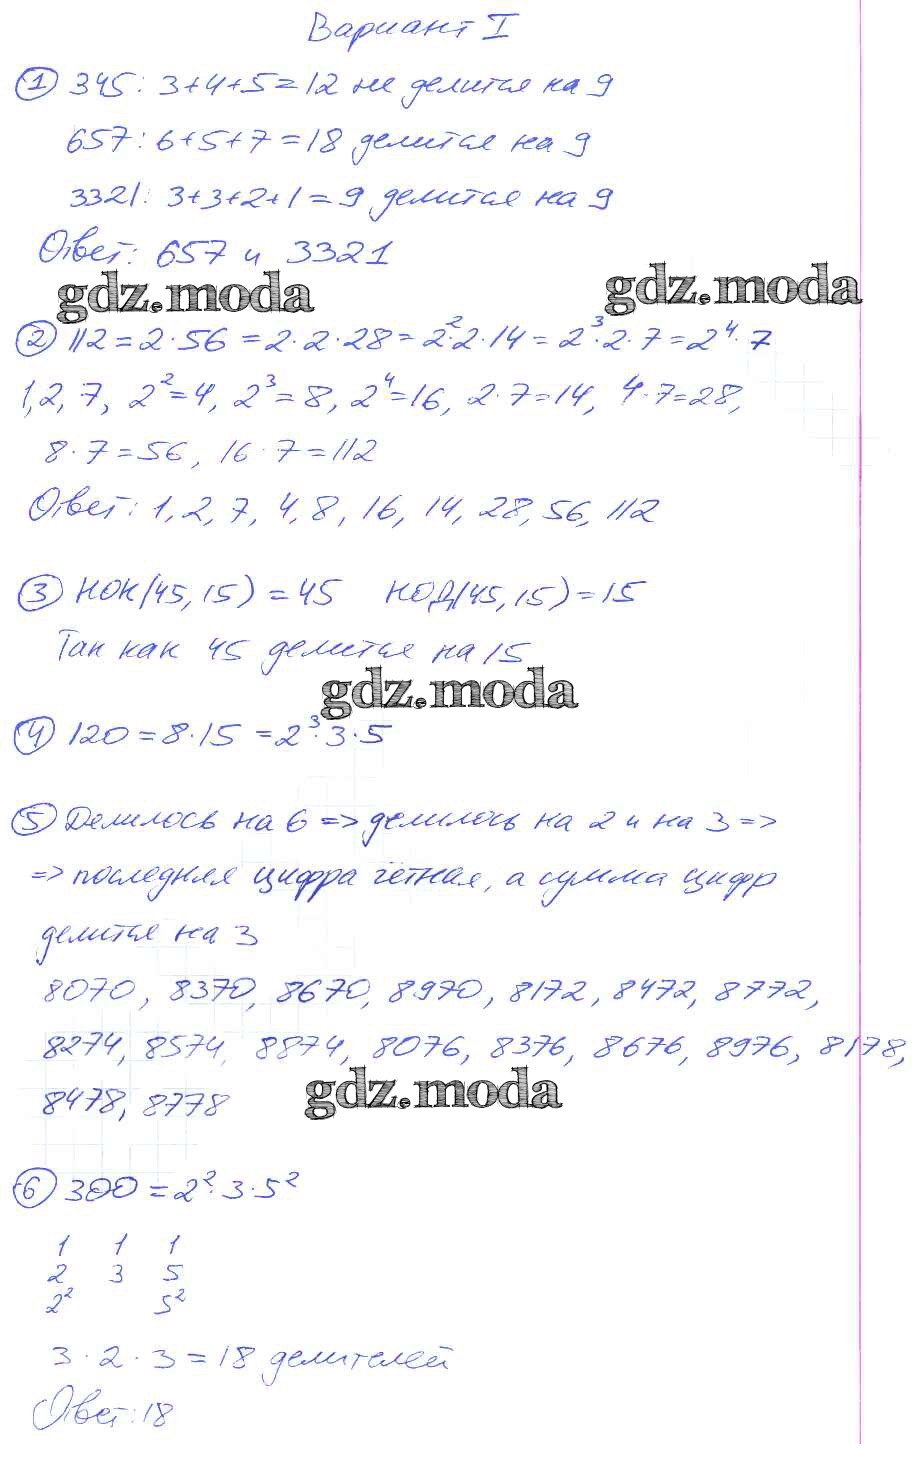 Вариант I
① 345: 3+4+5=12 не делится на 9
657: 6+5+7=18 делится на 9
3321: 3+3+2+1=9 делится на 9
Ответ: 657 и 3321
gdz.moda gdz.moda
② 112=2·56=2·2·28=2²·2·14=2³·2·7=2⁴·7
1, 2, 7, 2²=4, 2³=8, 2⁴=16, 2·7=14, 4·7=28,
8·7=56, 16·7=112
Ответ: 1, 2, 7, 4, 8, 16, 14, 28, 56, 112
③ НОК(45, 15)=45 НОД(45, 15)=15
Так как 45 делится на 15
gdz.moda
④ 120=8·15=2³·3·5
⑤ Делилось на 6 => делилось на 2 и на 3 =>
=> последняя цифра чётная, а сумма цифр
делится на 3
8070, 8370, 8670, 8970, 8172, 8472, 8772,
8274, 8574, 8874, 8076, 8376, 8676, 8976, 8178,
8478, 8778
gdz.moda
⑥ 300=2²·3·5²
1 1 1
2 3 5
2² 5²
3·2·3=18 делителей
Ответ: 18